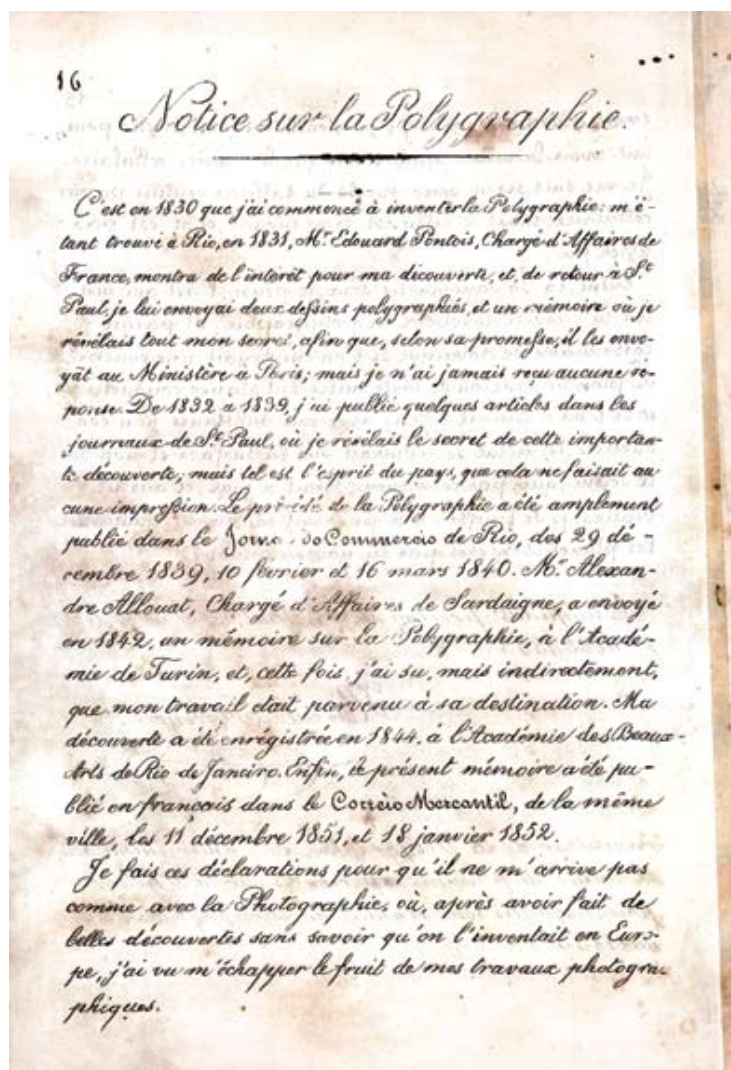 16
Notice sur la Polygraphie.
C'est en 1830 que j'ai commencé à inventer la Polygraphie: m'é-
tant trouvé à Rio, en 1831, Mr. Edouard Pontois, Chargé d'Affaires de
France, montra de l'intérêt pour ma découverte, et, de retour à St.
Paul, je lui envoyai deux dessins polygraphiés, et un mémoire où je
révélais tout mon secret, afin que, selon sa promesse, il les envo-
yât au Ministère à Paris; mais je n'ai jamais reçu aucune ré-
ponse. De 1832 a 1839, j'ai publié quelques articles dans les
journaux de St. Paul, où je révélais le secret de cette importan-
te découverte; mais tel est l'esprit du pays, que cela ne faisait au
cune impression. Le procédé de la Polygraphie a été amplement
publié dans le Jorna do Commercio de Rio, des 29 dé-
cembre 1839, 10 février et 16 mars 1840. Mr. Alexan-
dre Allouat, Chargé d'Affaires de Sardaigne, a envoyé
en 1842, un mémoire sur la Polygraphie, à l'Acadé-
mie de Turin, et, cette fois, j'ai su, mais indirectement,
que mon travail était parvenu à sa destination. Ma
découverte a été enrégistrée en 1844, à l'Académie des Beaux-
Arts de Rio de Janeiro. Enfin, le présent mémoire a été pu-
blié en français dans le Correio Mercantil, de la même
ville, les 11 décembre 1851, et 18 janvier 1852.
Je fais ces déclarations pour qu'il ne m'arrive pas
comme avec la Photographie, où, après avoir fait de
belles découvertes sans savoir qu'on l'inventait en Euro-
pe, j'ai vu m'échapper le fruit de mes travaux photogra-
phiques.